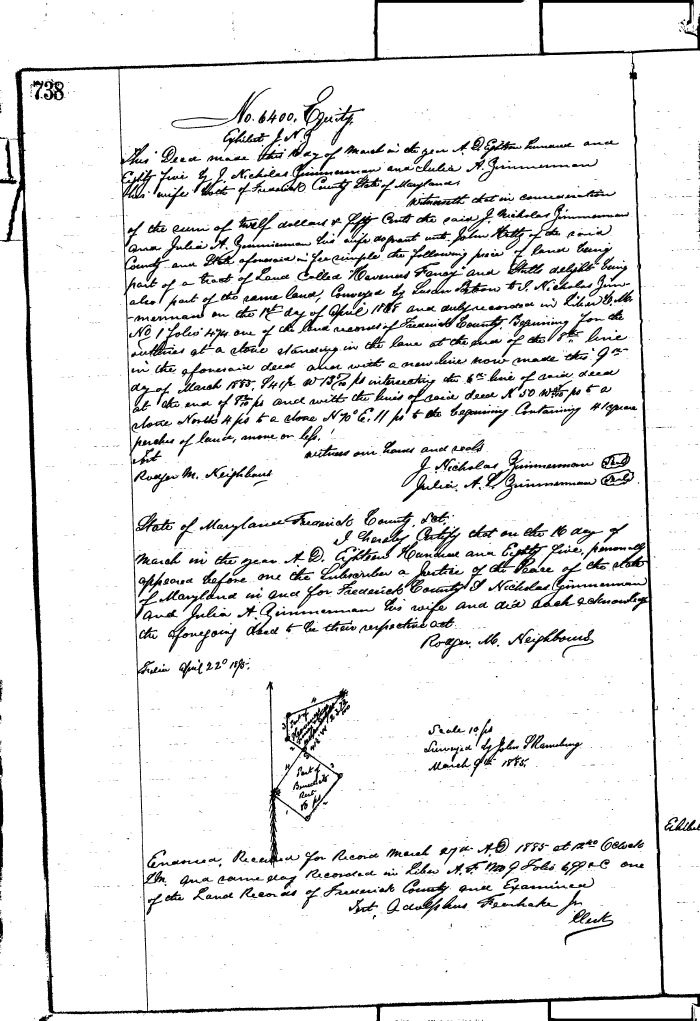 738
No. 6400, Equity
Exhibit J. N. Z
This Deed made this 16 day of March in the year A. D. Eighteen hundred and
Eighty Five by J. Nicholas Zimmerman and Julia A. Zimmerman
his wife both of Frederick County State of Maryland
Witnesseth that in consideration
of the sum of twelf dollars & fifty Cents the said J. Nicholas Zimmerman
and Julia A. Zimmerman his wife do grant unto John Hett of the said
County and State aforesaid in fee simple the following piece of land being
part of a tract of Land called Havenes Fancy and Stulls delight being
also part of the same land, Conveyed by Susan to J. Nicholas Zim-
-merman on the 1st day of April 1868 and duly recorded in Liber
No 1 Folio 474 one of the land records of Frederick County. Begining for the
outlines at a stone standing in the lane at the end of the 8th line
in the aforesaid deed and with a new line now made this 9th
day of March 1885. S 41½ W 13 ps intersecting the 6th line of said deed
at the end of ps and with the lines of said deed N 50 W ps to a
stone North 4 ps to a stone N 70° E. 11 ps to the begining Containing 41 square
perches of land, more or less.
Test witness our hands and seals
Rodger M. Neighbours J. Nicholas Zimmerman Seal
Julia. A. Zimmerman Seal
State of Maryland Frederick County, Sct.
I hereby Certify that on the 16 day of
March in the year A. D. Eighteen Hundred and Eighty Five, personally
appeared before me the Subscriber a Justice of the Peace of the State
of Maryland in and for Frederick County J Nicholas Zimmerman
and Julia A Zimmerman his wife and did each acknowledge
the aforegoing deed to be their respective act.
Rodger. M. Neighbours
April 22d
Part of
Part of
Rest
16 ps
Scale 10 ps
Surveyed by John S Ramsburg
March 9th 1885.
Endorsed, Received for Record March 27d A D 1885 at Oclock
M. and same day Recorded in Liber A. F. No 9 Folio 699 &C one
of the Land Records of Frederick County and Examined
Test, Adolphus Fearhake Jr
Clerk